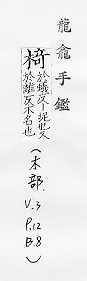 龍龕手鑑
椅於蟻反也又
於離反木名也
(木部.
V.3
P.12
B.8)